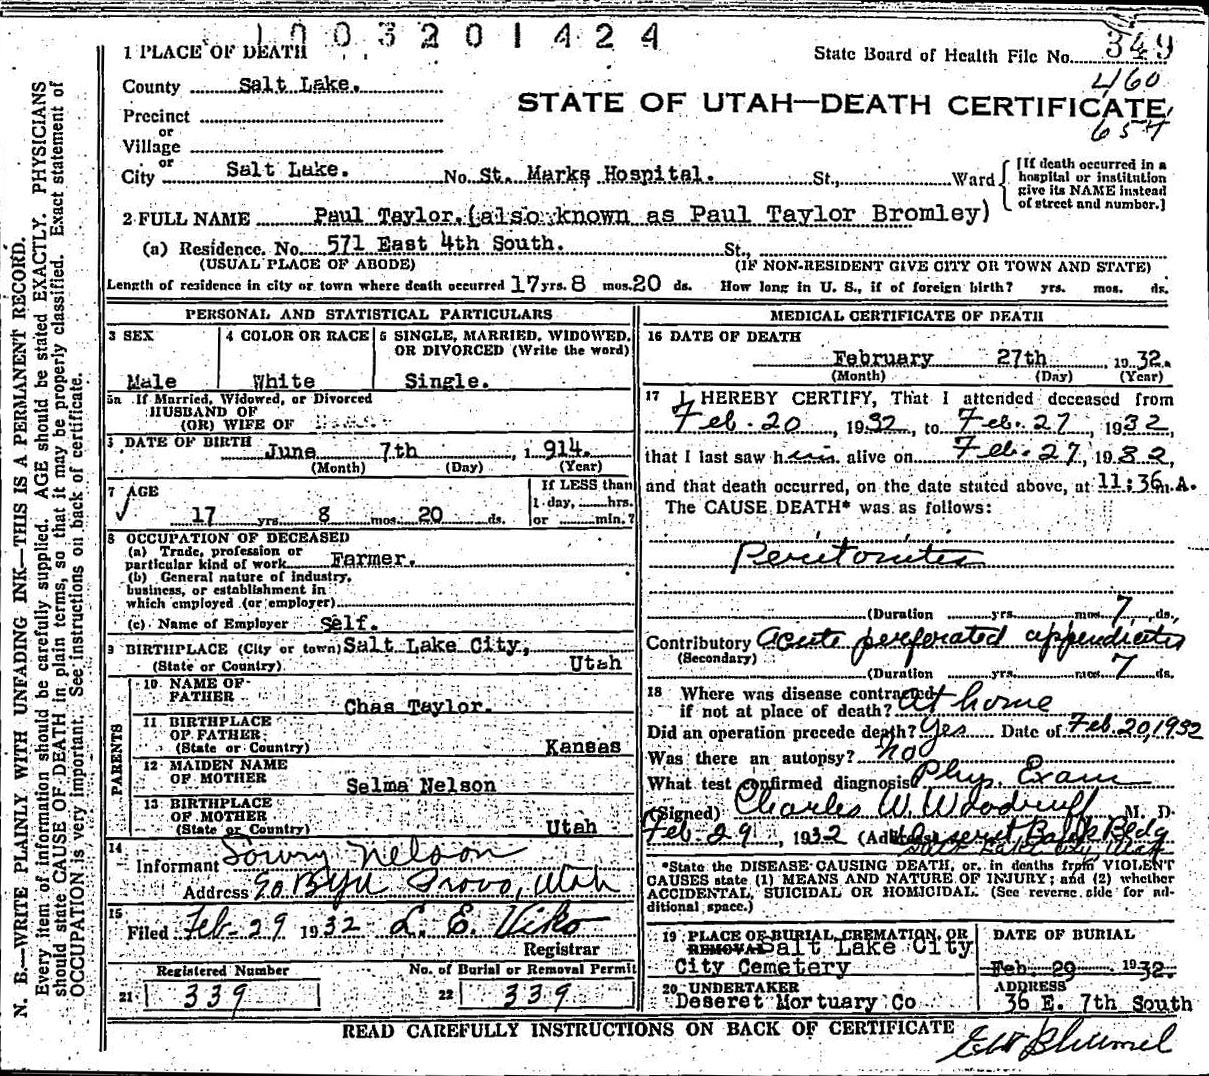 1003201424
1 PLACE OF DEATH
State Board of Health File No. 349
County Salt Lake.
460
STATE OF UTAH—DEATH CERTIFICATE
657
Precinct
or
Village
or
City Salt Lake. No. St. Marks Hospital. St., Ward
[If death occurred in a
hospital or institution
give its NAME instead
of street and number.]
2 FULL NAME Paul Taylor. (also known as Paul Taylor Bromley)
(a) Residence. No. 571 East 4th South. St.,
(USUAL PLACE OF ABODE) (IF NON-RESIDENT GIVE CITY OR TOWN AND STATE)
Length of residence in city or town where death occurred 17 yrs. 8 mos. 20 ds. How long in U. S., if of foreign birth? yrs. mos. ds.
PERSONAL AND STATISTICAL PARTICULARS
3 SEX
Male
4 COLOR OR RACE
White
5 SINGLE, MARRIED, WIDOWED,
OR DIVORCED (Write the word)
Single.
5a If Married, Widowed, or Divorced
HUSBAND OF
(OR) WIFE OF
6 DATE OF BIRTH
June 7th, 1 914.
(Month) (Day) (Year)
7 AGE
17 yrs. 8 mos. 20 ds.
If LESS than
1 day, hrs.
or min.?
8 OCCUPATION OF DECEASED
(a) Trade, profession or
particular kind of work Farmer.
(b) General nature of industry,
business, or establishment in
which employed (or employer)
(c) Name of Employer Self.
9 BIRTHPLACE (City or town) Salt Lake City,
(State or Country) Utah
PARENTS
10 NAME OF
FATHER Chas Taylor.
11 BIRTHPLACE
OF FATHER
(State or Country) Kansas
12 MAIDEN NAME
OF MOTHER Selma Nelson
13 BIRTHPLACE
OF MOTHER
(State or Country) Utah
14
Informant Lowry Nelson
Address BYU Provo, Utah
15
Filed Feb-29 1932 L. E. Viko
Registrar
Registered Number
21 339
No. of Burial or Removal Permit
22 339
MEDICAL CERTIFICATE OF DEATH
16 DATE OF DEATH
February 27th, 1932.
(Month) (Day) (Year)
17 I HEREBY CERTIFY, That I attended deceased from
Feb. 20, 1932, to Feb. 27, 1932,
that I last saw him alive on Feb. 27, 1932,
and that death occurred, on the date stated above, at 11:36 m.A.
The CAUSE DEATH* was as follows:
Peritonitis
(Duration yrs. mos. 7 ds.
Contributory Acute perforated appendicitis
(Secondary)
(Duration yrs. mos. 7 ds.
18 Where was disease contracted
if not at place of death? at home
Did an operation precede death? Yes Date of Feb. 20, 1932
Was there an autopsy? no
What test confirmed diagnosis Phys. Exam
(Signed) Charles W. Woodruff M. D.
Feb. 29, 1932 (Address Deseret Bank Bldg
Salt Lake City Utah
*State the DISEASE CAUSING DEATH, or, in deaths from VIOLENT
CAUSES state (1) MEANS AND NATURE OF INJURY; and (2) whether
ACCIDENTAL, SUICIDAL OR HOMICIDAL. (See reverse side for additional space.)
19 PLACE OF BURIAL, CREMATION, OR
REMOVAL Salt Lake City
City Cemetery
DATE OF BURIAL
Feb. 29 1932.
20 UNDERTAKER
Deseret Mortuary Co
ADDRESS
36 E. 7th South
READ CAREFULLY INSTRUCTIONS ON BACK OF CERTIFICATE
N. B.—WRITE PLAINLY WITH UNFADING INK—THIS IS A PERMANENT RECORD.
Every item of information should be carefully supplied. AGE should be stated EXACTLY. PHYSICIANS
should state CAUSE OF DEATH in plain terms, so that it may be properly classified. Exact statement of
OCCUPATION is very important. See instructions on back of certificate.